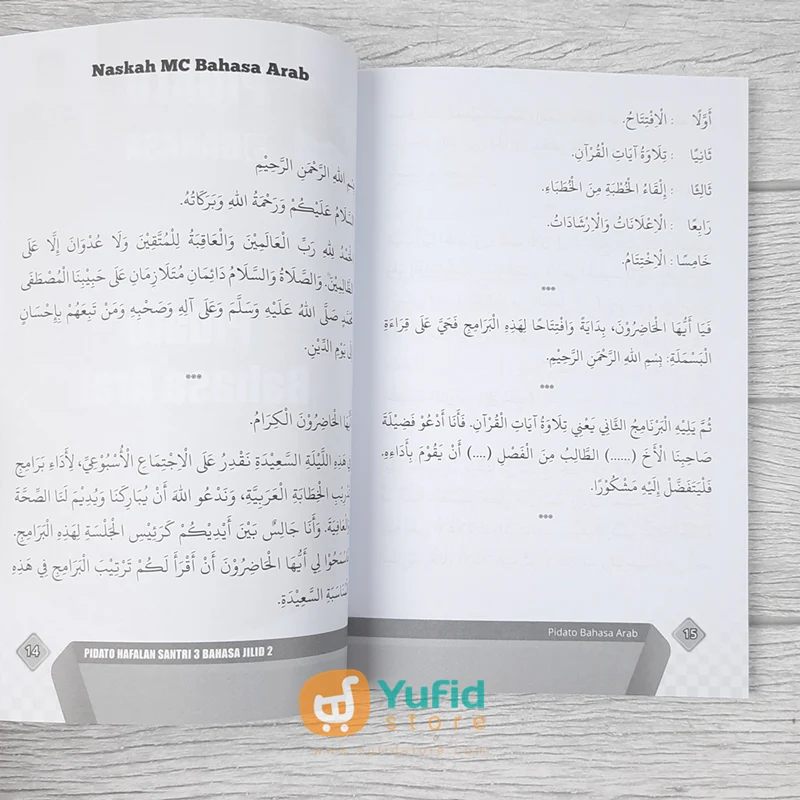 Naskah MC Bahasa Arab
بِسْمِ اللهِ الرَّحْمَنِ الرَّحِيْمِ
السَّلَامُ عَلَيْكُمْ وَرَحْمَةُ اللهِ وَبَرَكَاتُهُ.
الْحَمْدُ لِلهِ رَبِّ الْعَالَمِيْنَ وَالْعَاقِبَةُ لِلْمُتَّقِيْنَ وَلَا عُدْوَانَ إِلَّا عَلَى
الظَّالِمِيْنَ. وَالصَّلَاةُ وَالسَّلَامُ دَائِمَانِ مُتَلَازِمَانِ عَلَى حَبِيْبِنَا الْمُصْطَفَى
مُحَمَّدٍ صَلَّى اللهُ عَلَيْهِ وَسَلَّمَ وَعَلَى آلِهِ وَصَحْبِهِ وَمَنْ تَبِعَهُمْ بِإِحْسَانٍ
إِلَى يَوْمِ الدِّيْنِ.
***
أَيُّهَا الْحَاضِرُوْنَ الْكِرَامُ.
هَذِهِ اللَّيْلَةِ السَّعِيْدَةِ نَقْدُرُ عَلَى الْاِجْتِمَاعِ الْأُسْبُوْعِيِّ، لِأَدَاءِ بَرَامِجِ
الْخِطَابَةِ الْعَرَبِيَّةِ، وَنَدْعُو اللهَ أَنْ يُبَارِكَنَا وَيُدِيْمَ لَنَا الصِّحَّةَ
وَالْعَافِيَةَ. وَأَنَا جَالِسٌ بَيْنَ أَيْدِيْكُمْ كَرَئِيْسِ الْجَلْسَةِ لِهَذِهِ الْبَرَامِجِ.
لِي أَيُّهَا الْحَاضِرُوْنَ أَنْ أَقْرَأَ لَكُمْ تَرْتِيْبَ الْبَرَامِجِ فِي هَذِهِ
الْمُنَاسَبَةِ السَّعِيْدَةِ.
14
PIDATO HAFALAN SANTRI 3 BAHASA JILID 2
أَوَّلًا : الْاِفْتِتَاحُ.
ثَانِيًا : تِلَاوَةُ آيَاتِ الْقُرْآنِ.
ثَالِثًا : إِلْقَاءُ الْخُطْبَةِ مِنَ الْخُطَبَاءِ.
رَابِعًا : الْإِعْلَانَاتُ وَالْإِرْشَادَاتُ.
خَامِسًا : الْاِخْتِتَامُ.
***
فَيَا أَيُّهَا الْحَاضِرُوْنَ، بِدَايَةً وَافْتِتَاحًا لِهَذِهِ الْبَرَامِجِ فَحَيَّ عَلَى قِرَاءَةِ
الْبَسْمَلَةِ: بِسْمِ اللهِ الرَّحْمَنِ الرَّحِيْمِ.
***
ثُمَّ يَلِيْهِ الْبَرْنَامِجُ الثَّانِي يَعْنِي تِلَاوَةُ آيَاتِ الْقُرْآنِ. فَأَنَا أَدْعُوْ فَضِيْلَةَ
صَاحِبِنَا الْأَخِّ (......) الطَّالِبُ مِنَ الْفَصْلِ (....) أَنْ يَقُوْمَ بِأَدَاءِهِ.
فَلْيَتَفَضَّلْ إِلَيْهِ مَشْكُوْرًا.
***
Pidato Bahasa Arab
15
Yufid
store